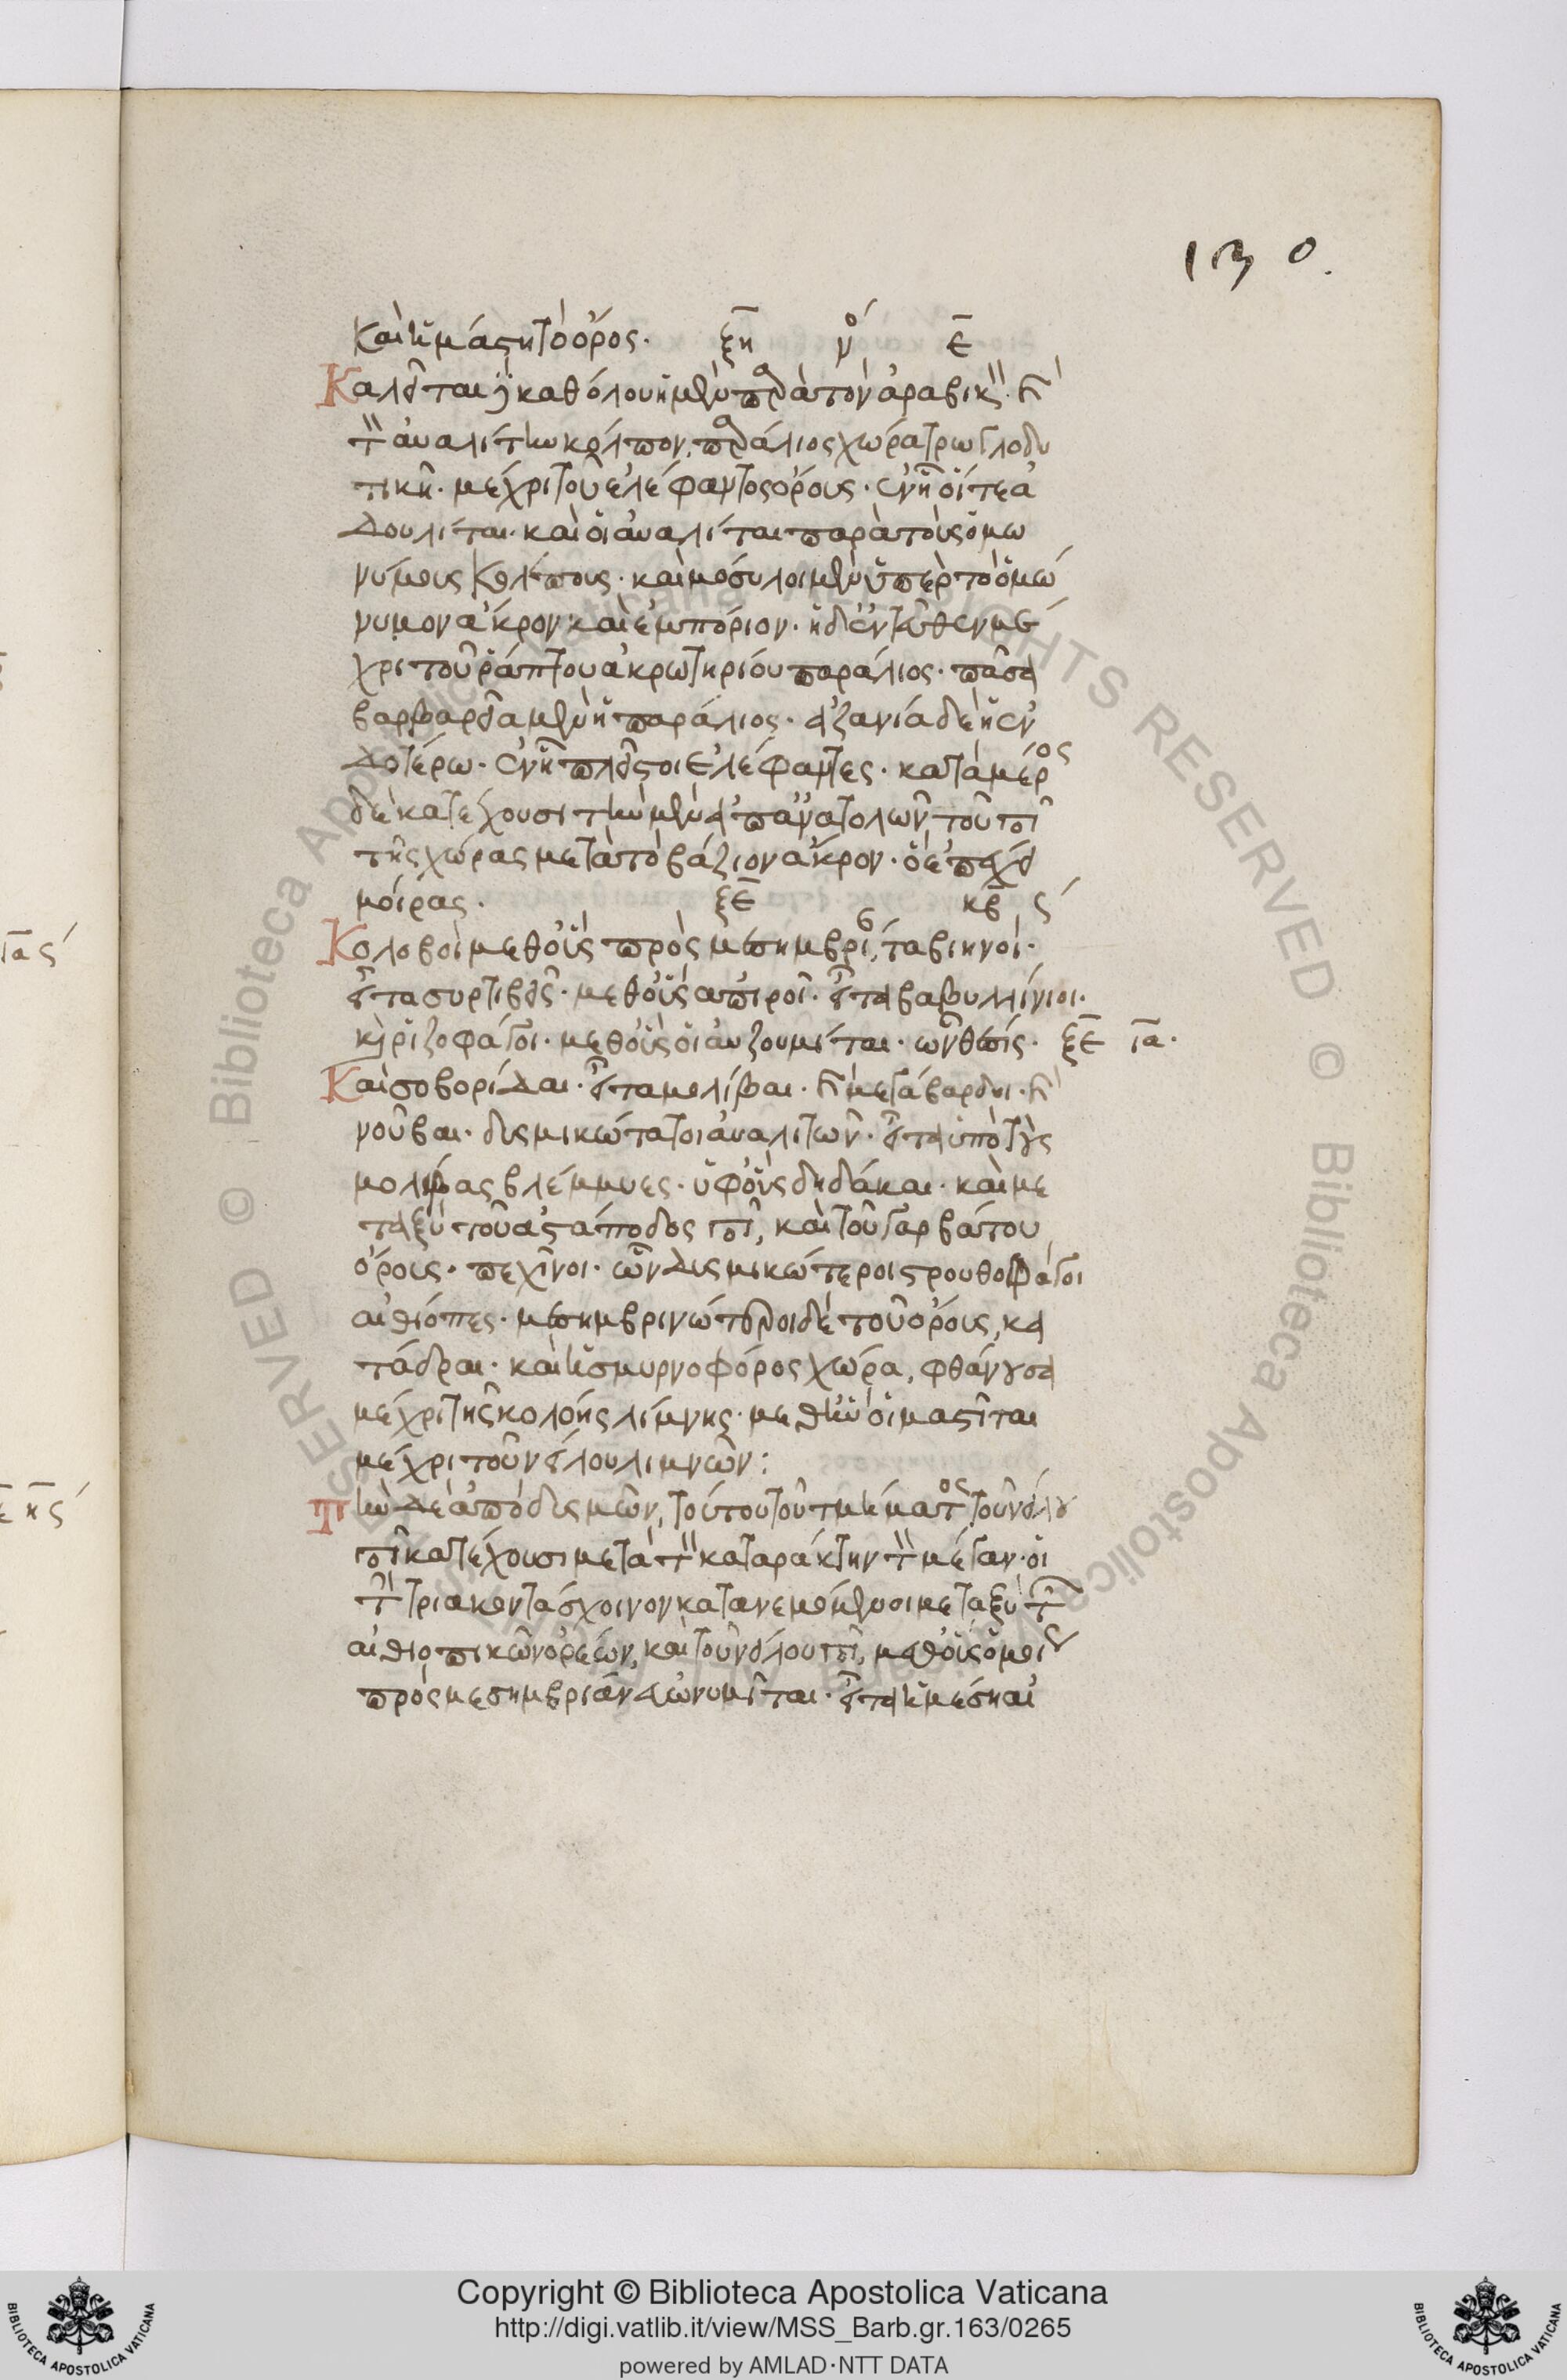 130.
καὶ ἡ μάστη τὸ ὄρος. ξη γο´ ε
Καλεῖται δὲ καθόλου ἡ μὲν παρὰ τὸν ἀραβικὸν καὶ
τὸν αὐαλίτην κόλπον παράλιος χώρα τρωγλοδυ
τικὴ. μέχρι τοῦ ἐλέφαντος ὄρους. ἐν ᾗ οἵ τε ἀ
δουλίται. καὶ οἱ αὐαλίται παρὰ τοὺς ὁμω
νύμους κόλπους. καὶ μόσυλοι μὲν ὑπὲρ τὸ ὁμώ
νυμον ἄκρον καὶ ἐμπόριον. ἡ δ' ἐντεῦθεν μέ
χρι τοῦ ῥάπτου ἀκρωτηρίου παράλιος. πᾶσα
βαρβαρεία μὲν ἡ παράλιος. ἀζανία δὲ ἡ ἐν
δοτέρω. ἐν ᾗ πλεῖστοι ἐλέφαντες. κατὰ μέρος
δὲ κατέχουσι τὴν μὲν ἀπ' ἀνατολῶν τοῦ ποτ
τῆς χώρας μετὰ τὸ βάζιον ἄκρον. ὃ ἐπέχει
μοίρας. ξε κβ ς´
Κολοβοὶ μεθ' οὓς πρὸς μεσημβρί, ταβιηνοί.
εἶτα συρτιβεῖς. μεθ' οὓς ἀπιροῖ. εἶτα βαβυλλίνιοι.
καὶ ῥιζοφάγοι. μεθ' οὓς οἱ αὐζουμίται. ὧν θέσις. ξε ια.
Καὶ σοβορίδαι. εἶτα μολίβαι. καὶ μεγάβαρδοι. καὶ
νοῦβαι. δυσμικώτατοι αὐαλιτῶν. εἶτα ὑπὸ τοὺς
μολίβας βλέμμυες. ὑφ' οὓς δηδάκαι. καὶ με
ταξὺ τοῦ ἀστάποδος ποτ, καὶ τοῦ γαρβάτου
ὄρους. πεχῖνοι. ὧν δυσμικώτεροι στρουθοφάγοι
αἰθίοπες. μεσημβρινώτεροι δὲ τοῦ ὄρους, κα
τάδραι. καὶ ἡ σμυρνοφόρος χώρα, φθάνουσα
μέχρι τῆς κολόης λίμνης. μεθ' ἣν οἱ μαστῖται
μέχρι τοῦ νείλου λιμνῶν:
Τὴν δὲ ἀπὸ δυσμῶν, τούτου τοῦ τμήματος τοῦ νείλου
ποτ κατέχουσι μετὰ τὸν καταράκτην τὸν μέγαν. οἱ
τὴν τριακοντάσχοινον κατανεμόμενοι μεταξὺ τῶν
αἰθιοπικῶν ὀρέων, καὶ τοῦ νείλου ποτ, μεθ' οὓς ὁμοίως
πρὸς μεσημβρίαν εὐωνυμῖται. εἶτα ἡ μέση αἰ
ιας´
ε ης´
Copyright © Biblioteca Apostolica Vaticana
http://digi.vatlib.it/view/MSS_Barb.gr.163/0265
powered by AMLAD·NTT DATA